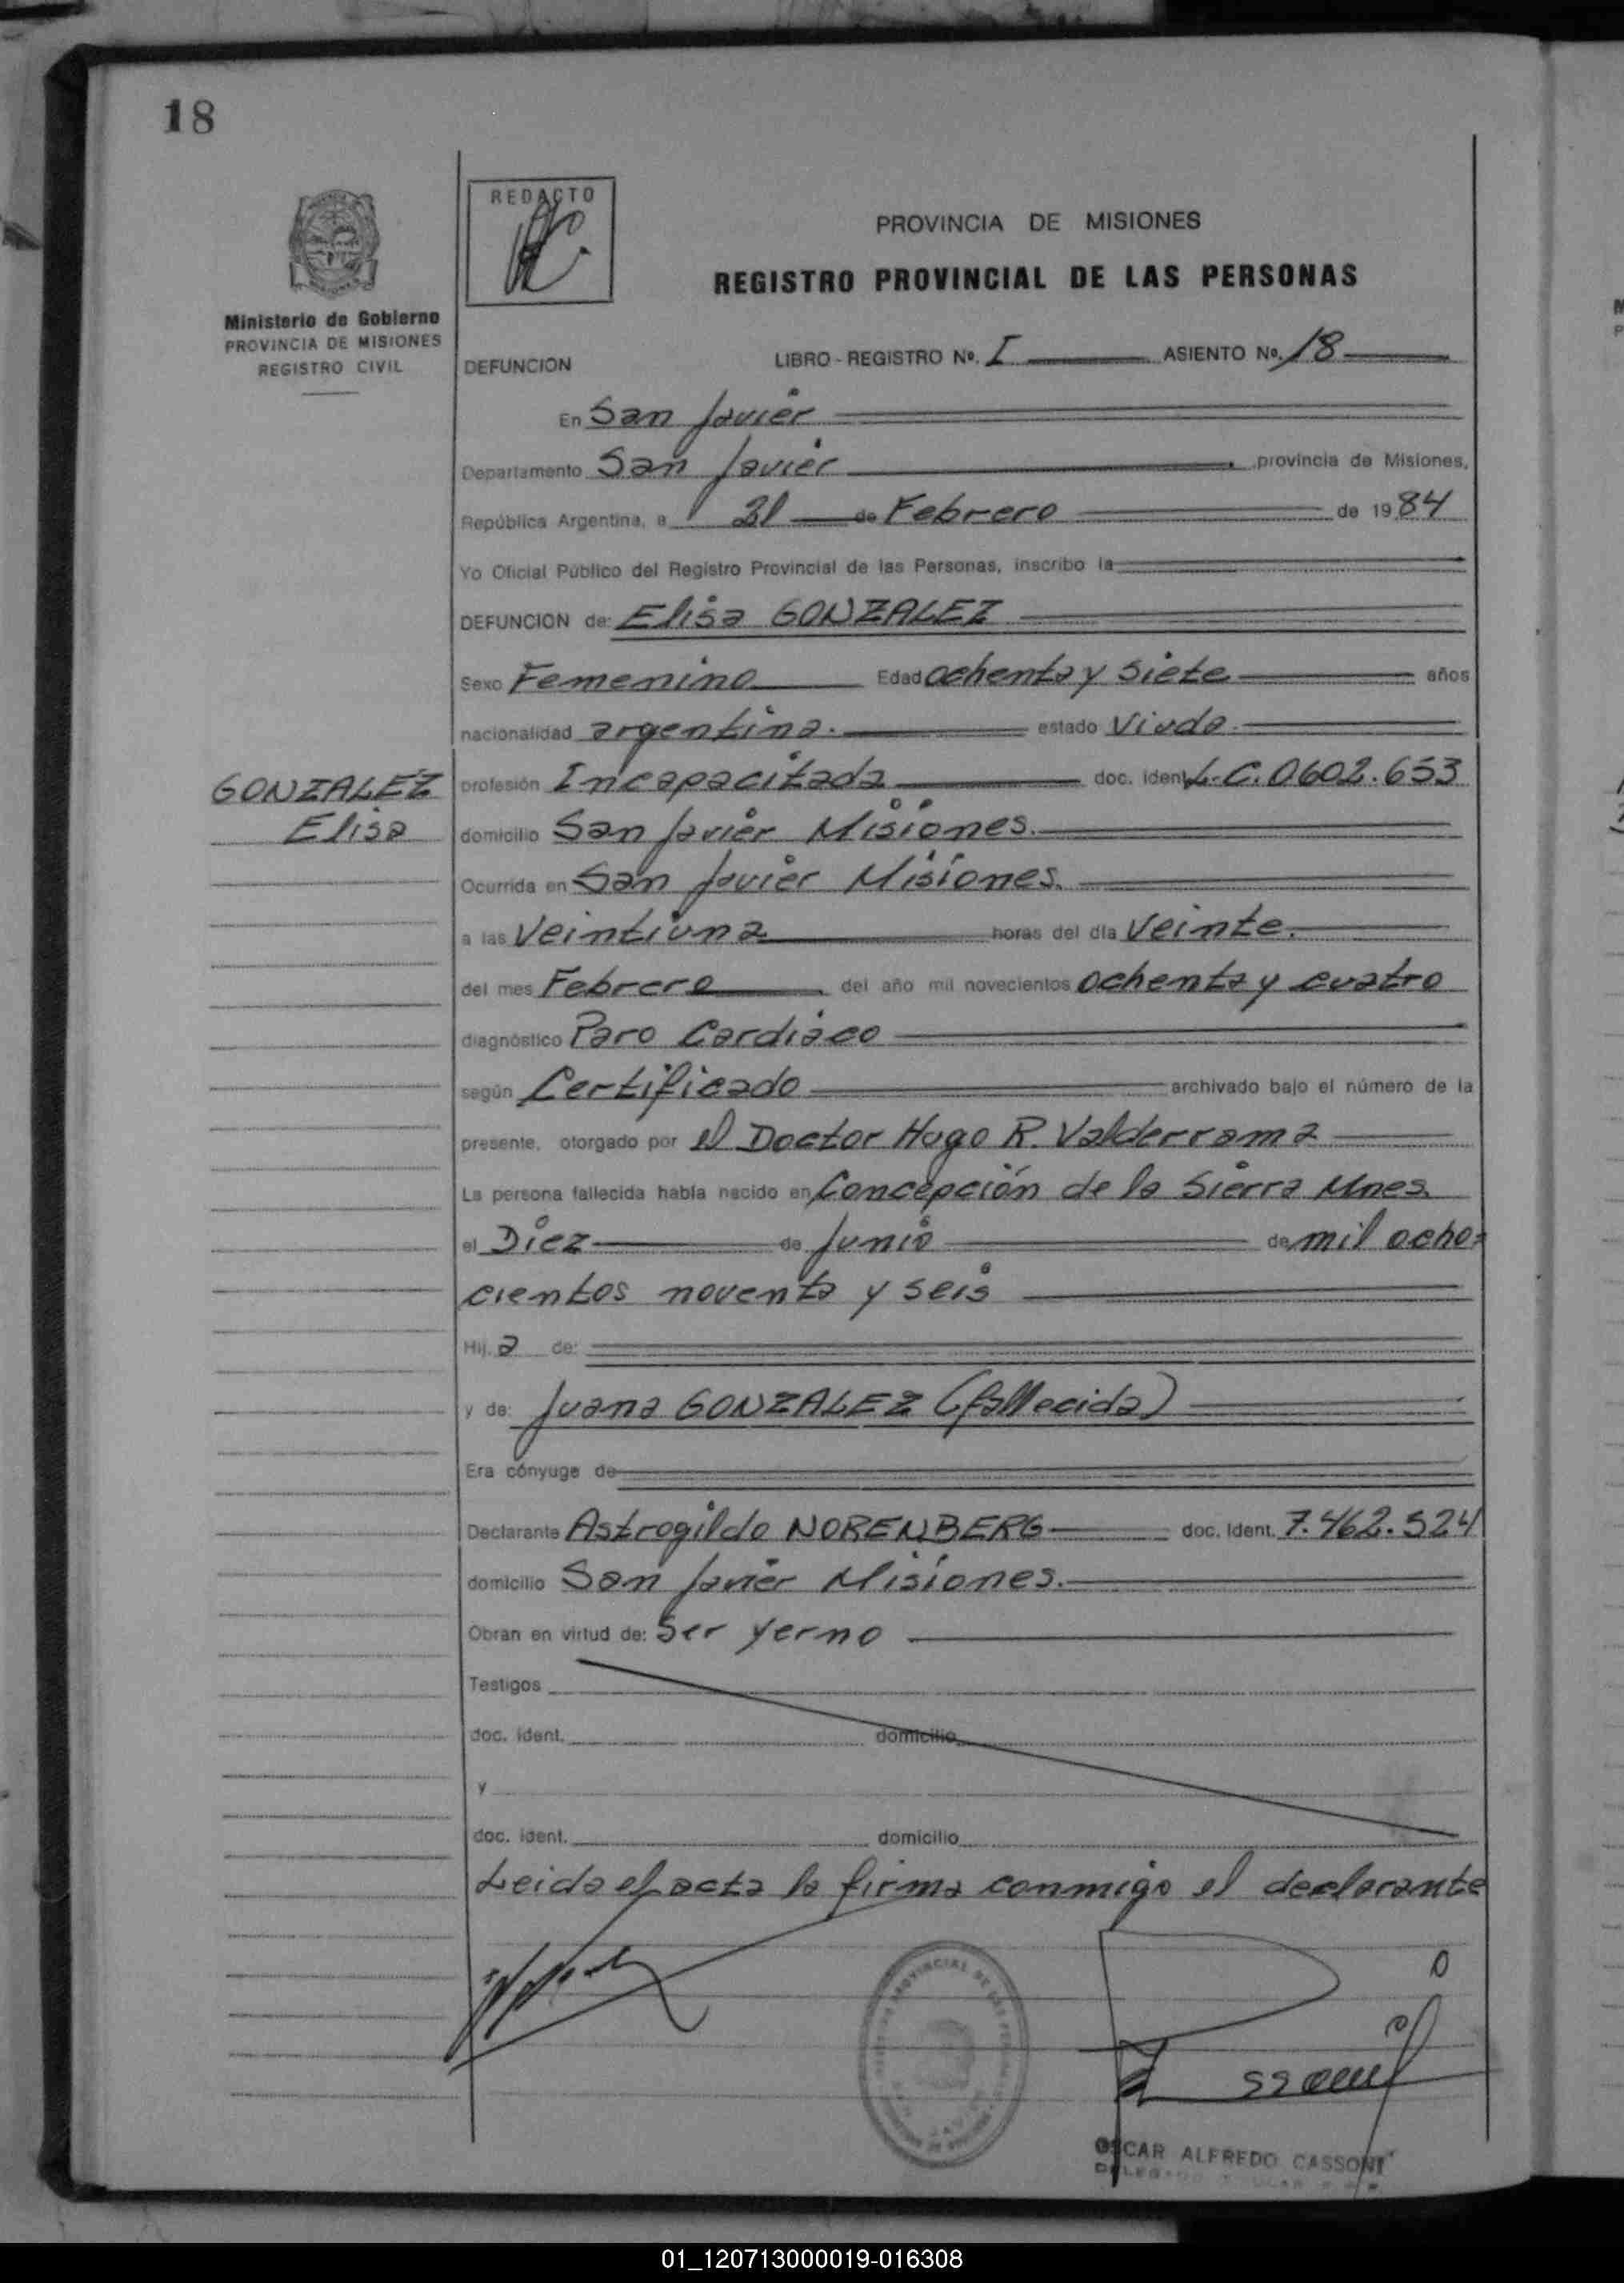 18
REDACTO
PROVINCIA DE MISIONES
REGISTRO PROVINCIAL DE LAS PERSONAS
Ministerio de Gobierno
PROVINCIA DE MISIONES
REGISTRO CIVIL
DEFUNCION LIBRO - REGISTRO Nº. I ASIENTO No. 18
En San Javier
Departamento San Javier provincia de Misiones,
República Argentina, a 21 de Febrero de 1984
Yo Oficial Público del Registro Provincial de las Personas, inscribo la
DEFUNCION de: Elisa GONZALEZ
Sexo Femenino Edad ochenta y siete años
nacionalidad argentina. estado Viuda.
GONZALEZ
Elisa
profesión Incapacitada doc. ident L.C. 0602.653
domicilio San Javier Misiones.
Ocurrida en San Javier Misiones.
a las Veintiuna horas del día Veinte.
del mes Febrero del año mil novecientos ochenta y cuatro
diagnóstico Paro Cardiaco
según Certificado archivado bajo el número de la
presente, otorgado por el Doctor Hugo R. Valderrama
La persona fallecida había nacido en Concepción de la Sierra Mnes.
el Diez de Junio de mil ocho=
cientos noventa y seis
Hij. a de:
y de: Juana GONZALEZ (fallecida)
Era cónyuge de
Declarante Astrogildo NORENBERG doc. Ident. 7.462.524
domicilio San Javier Misiones.
Obran en virtud de: Ser yerno
Testigos
doc. ident. domicilio
y
doc. ident. domicilio
Leida el acta la firma conmigo el declarante
OSCAR ALFREDO CASSONI
01_120713000019-016308